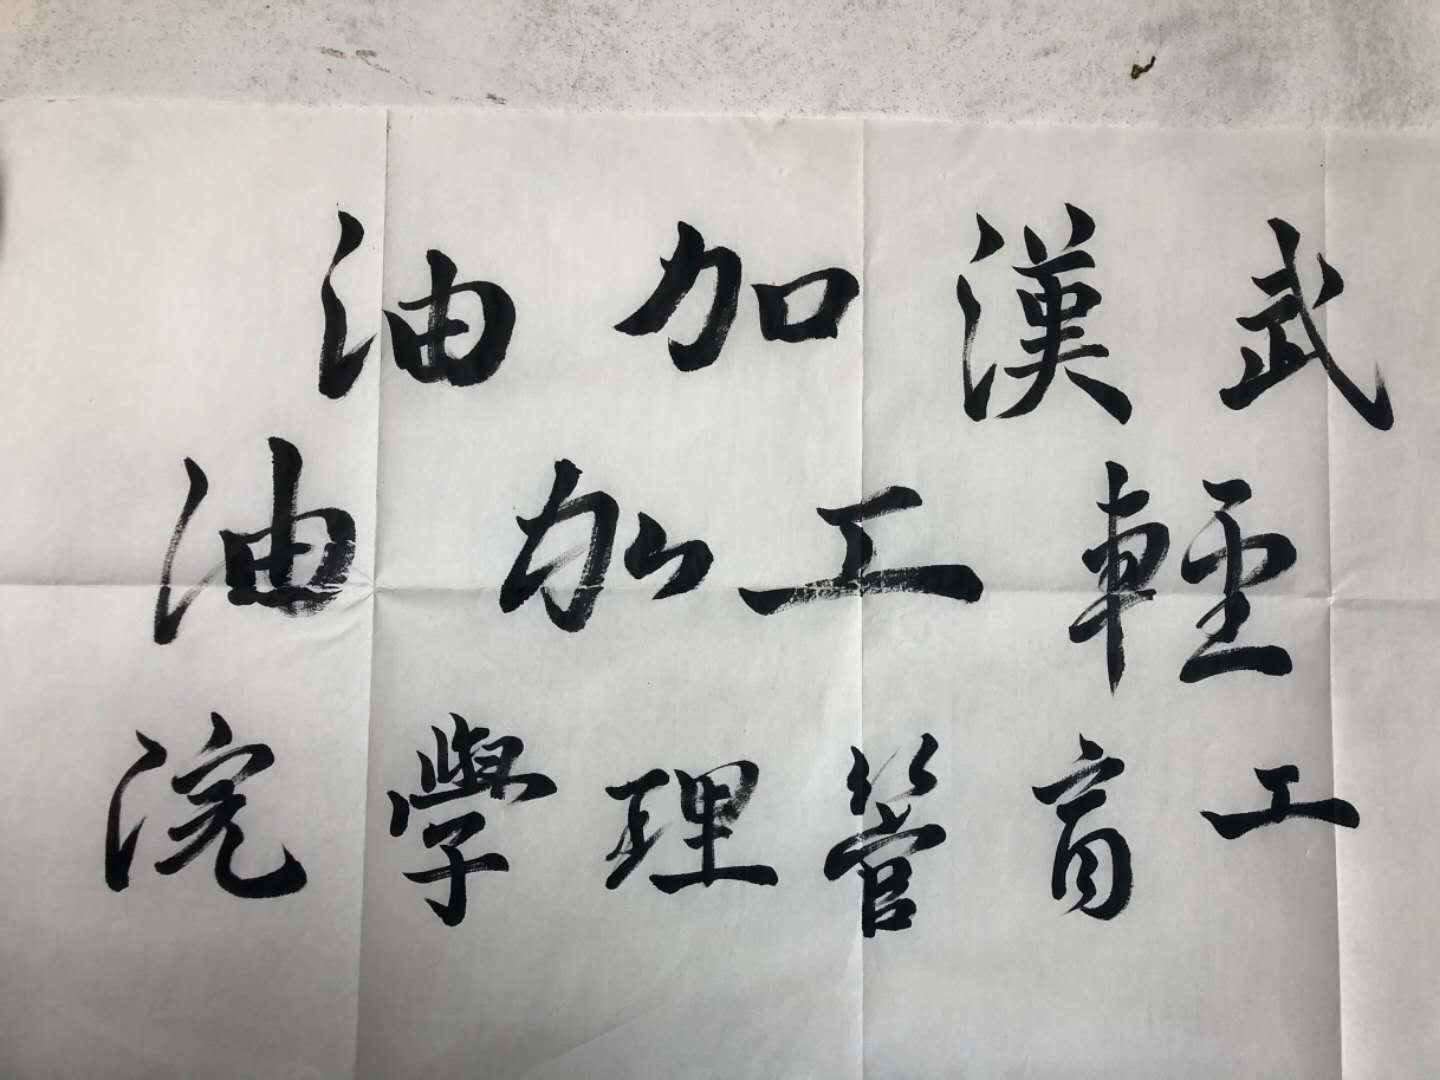 武漢加油
輕工加油
工商管理學院